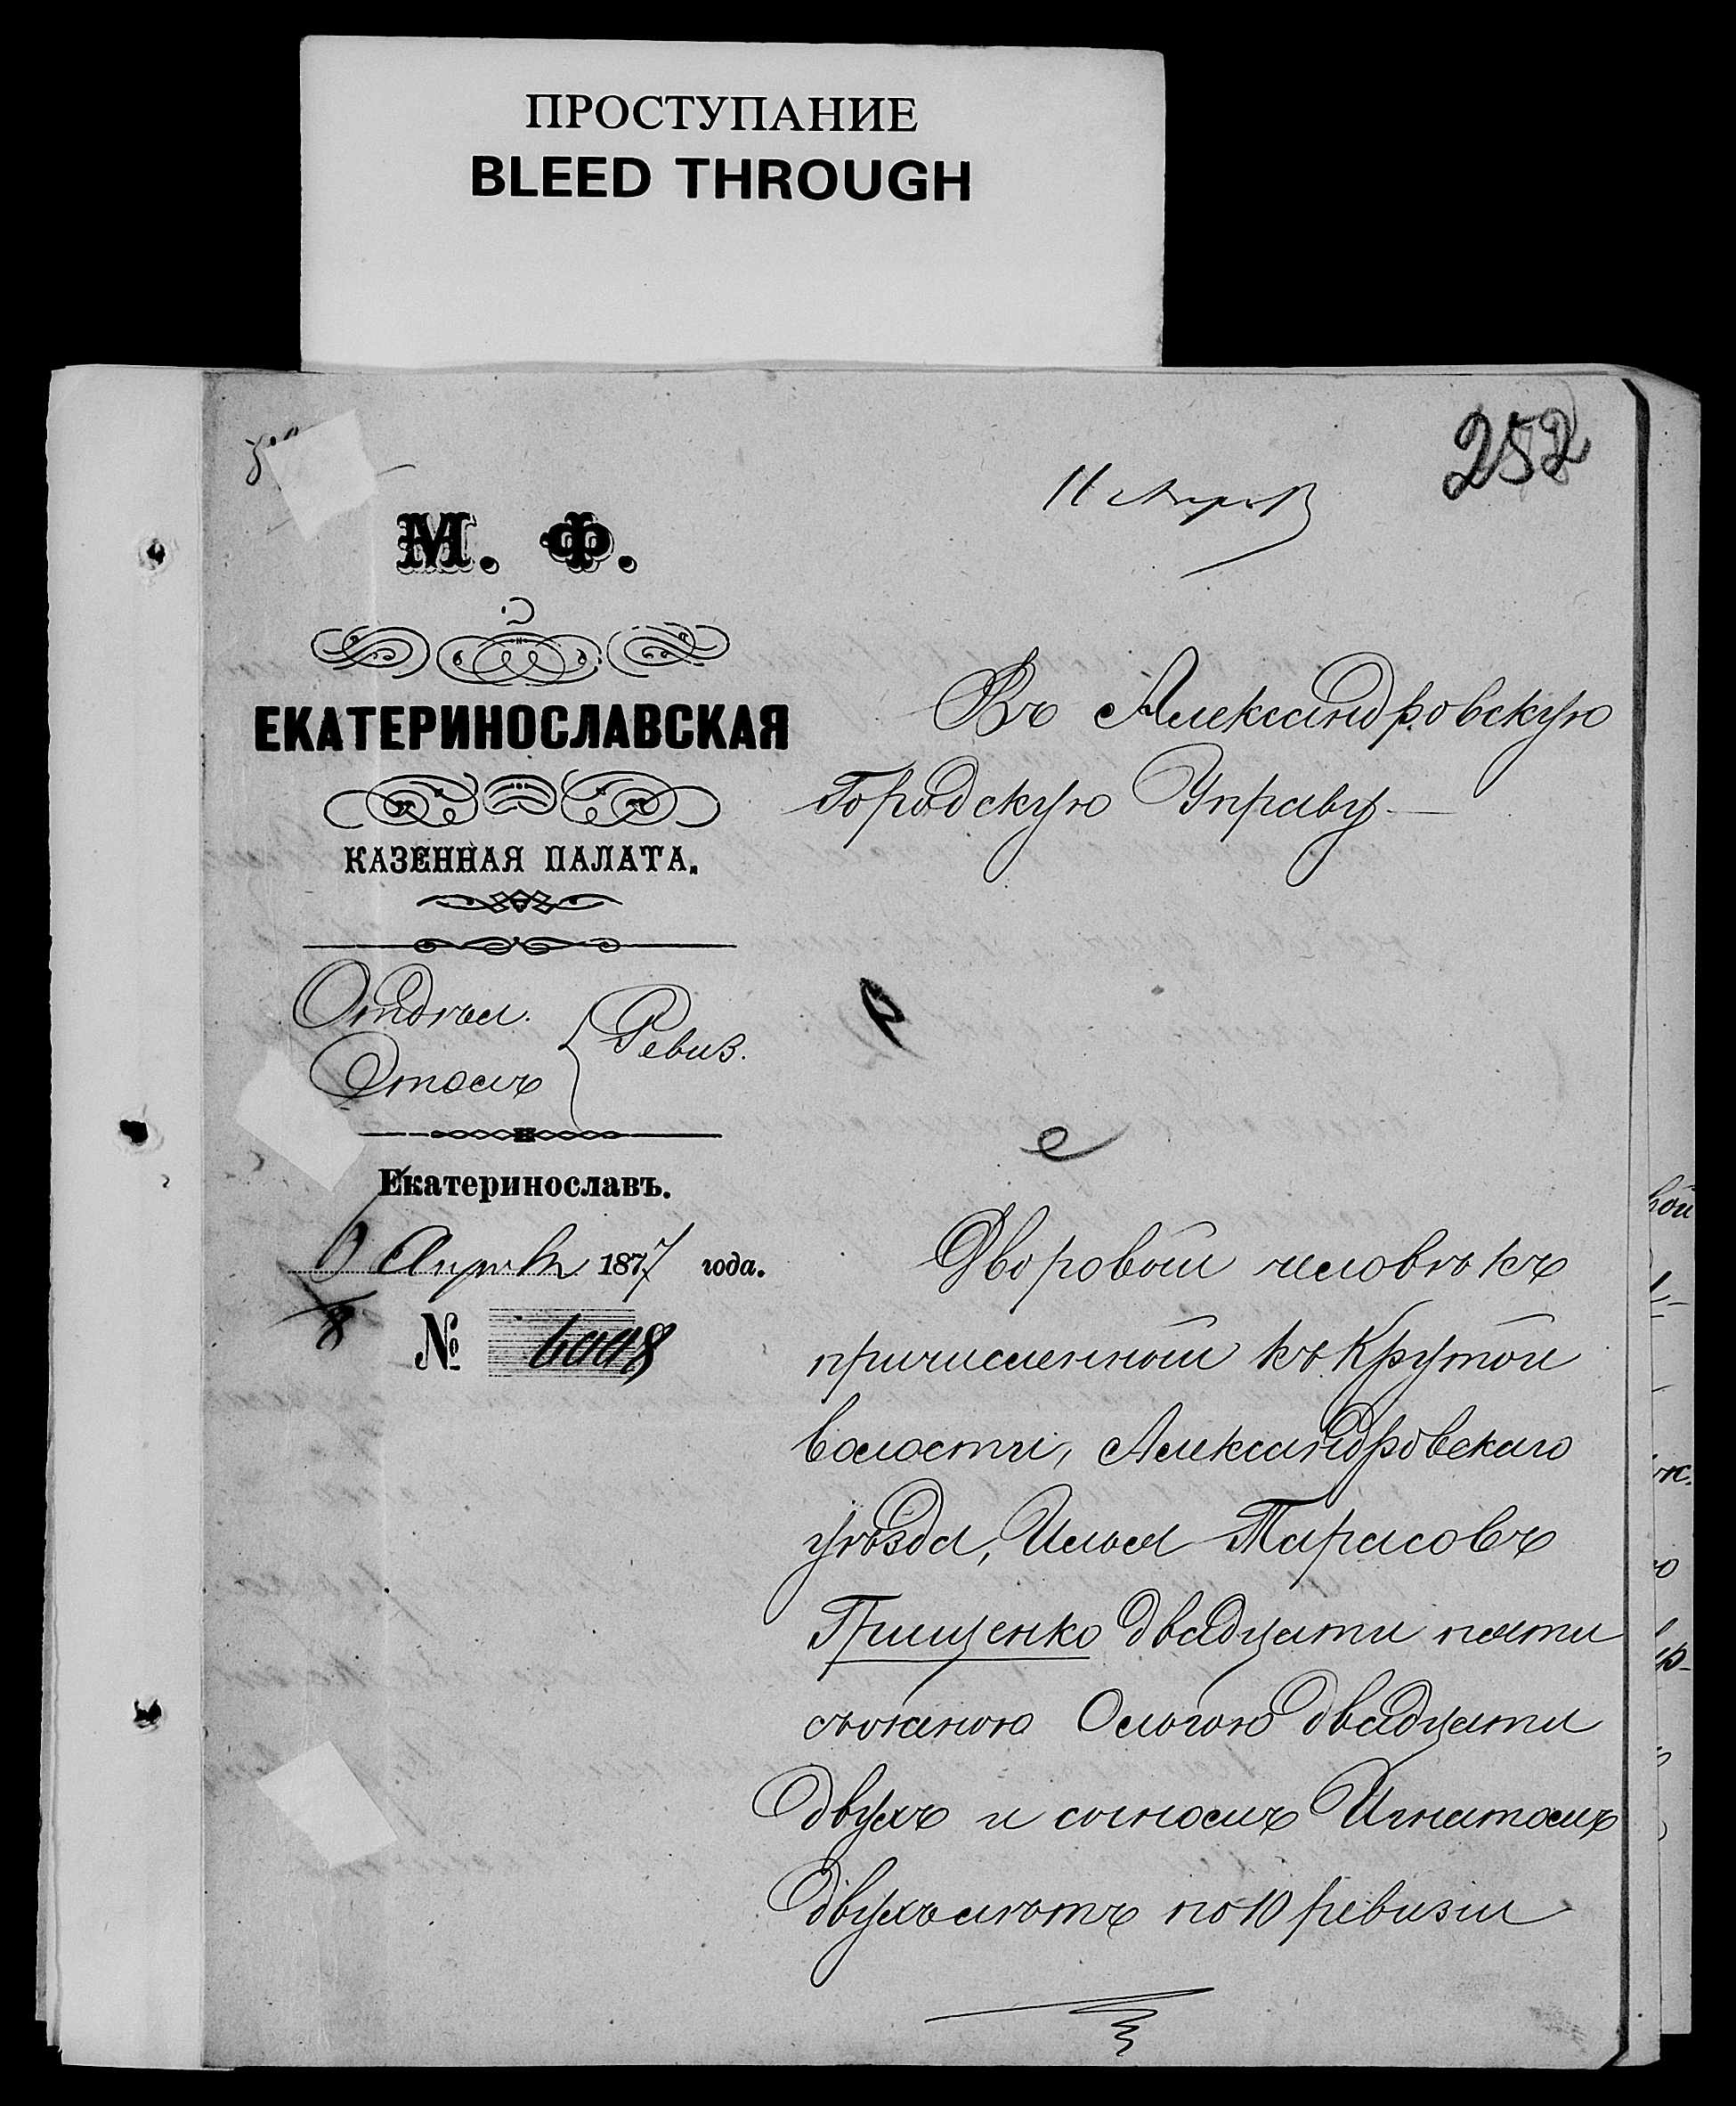 ПРОСТУПАНИЕ
BLEED THROUGH
252
11 Апрѣл
М. Ф.
ЕКАТЕРИНОСЛАВСКАЯ
КАЗЕННАЯ ПАЛАТА.
Отдѣл.
Столъ
Ревиз.
Екатеринославъ.
Апрѣля 1877 года.
№ 6008
Въ Александровскую
Городскую Управу
Дворовый человѣкъ
причисленный къ Крутой
волости, Александровскаго
уѣзда, Илья Тарасовъ
Грищенко двадцати пяти
съ женою Ольгою двадцати
двухъ и сыномъ Игнатомъ
двухъ лѣтъ по 10 ревизіи